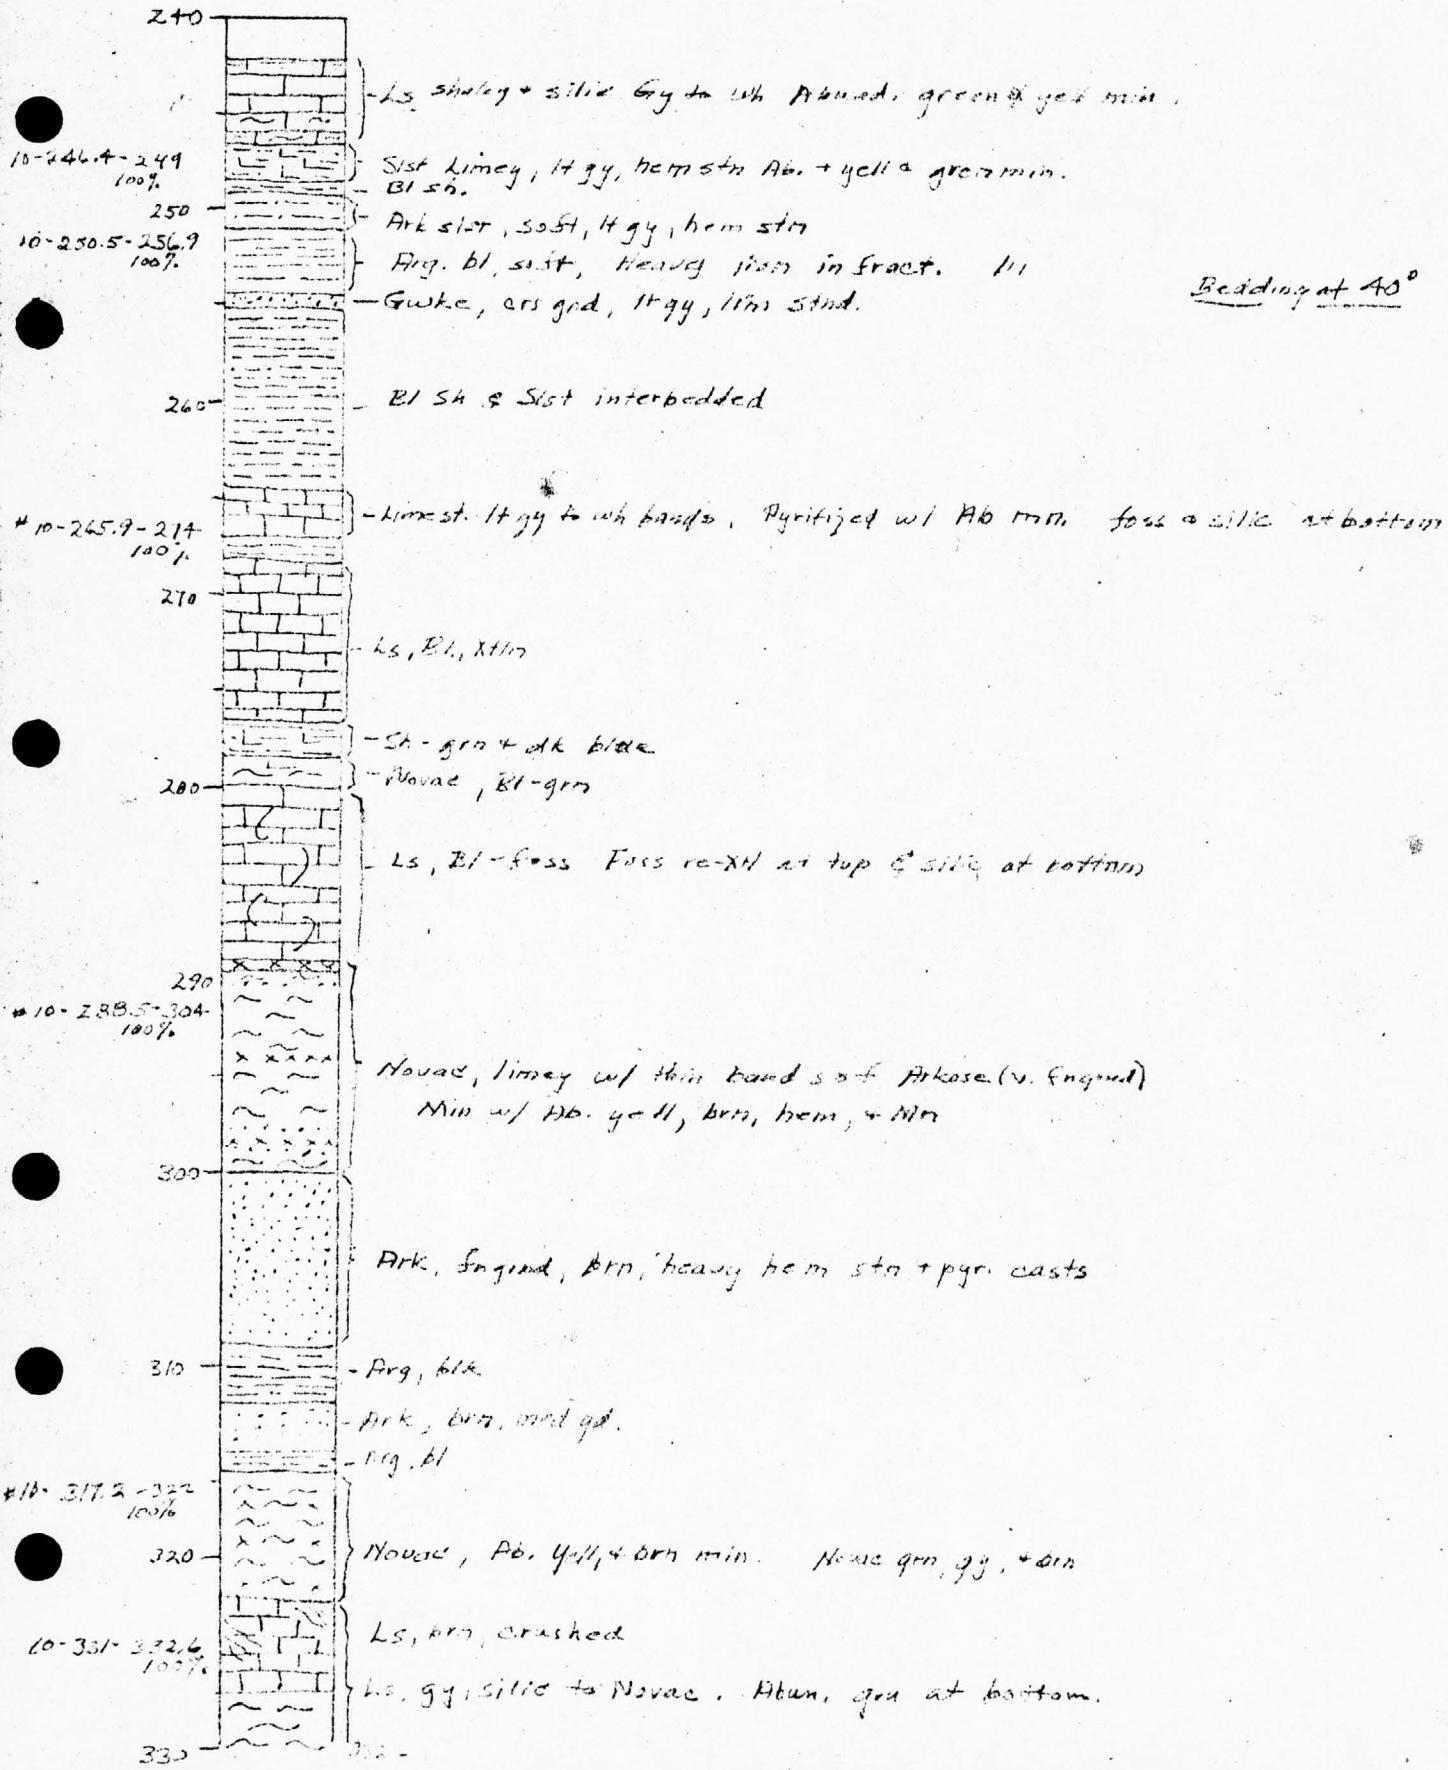 240
Ls shaley + silic Gy to wh Abund. green & yel min.
10-246.4-249
100%
Slst Limey, lt gy, hem stn Ab. + yell & green min.
Bl sh.
250
Ark slst, soft, lt gy, hem stn
10-250.5-256.9
100%
Arg. bl, soft, Heavy in fract.
Bedding at 40°
Gwke, crs gnd, lt gy, lim stnd.
260
Bl Sh & Slst interbedded
Limest. lt gy to wh bands, Pyritized w/ Ab mn. foss & silic at bottom
# 10-265.9-274
100%
270
Ls, Bl, Xtln
Sh - grn + dk blue
Novac, Bl-grn
280
Ls, Bl-foss Foss re-Xtl at top & silic at bottom
290
# 10-288.5-304
100%
Novac, limey w/ thin bands of Arkose (v. fngrnd)
Min w/ Ab. yell, brn, hem, + Mn
300
Ark, fngrnd, brn, heavy hem stn + pyr. casts
310
Arg, blk
Ark, brn, med gd.
Arg, bl
#10-317.2-322
100%
320
Novac, Ab. Yell, + brn min. Novac grn, gy, + brn
Ls, brn, crushed
10-331-332.6
100%
Ls, gy, silic to Novac. Abun. grn at bottom.
330